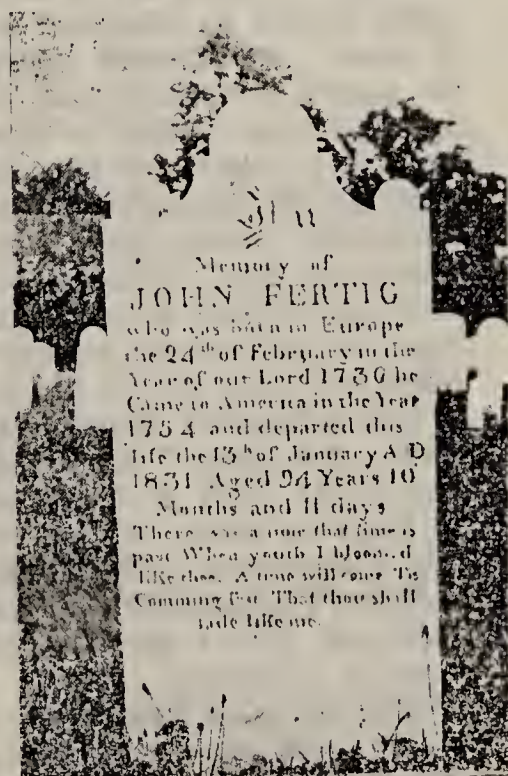 In
Memory of
JOHN FERTIG
who was born in Europe
the 24th of February in the
Year of our Lord 1736 he
Came to America in the Year
1754 and departed this
life the 13th of January A D
1831 Aged 94 Years 10
Months and 11 days
There was a time that time is
past When youth I bloomed
like thee. A time will come Tis
Comming fast That thou shall
fade like me.